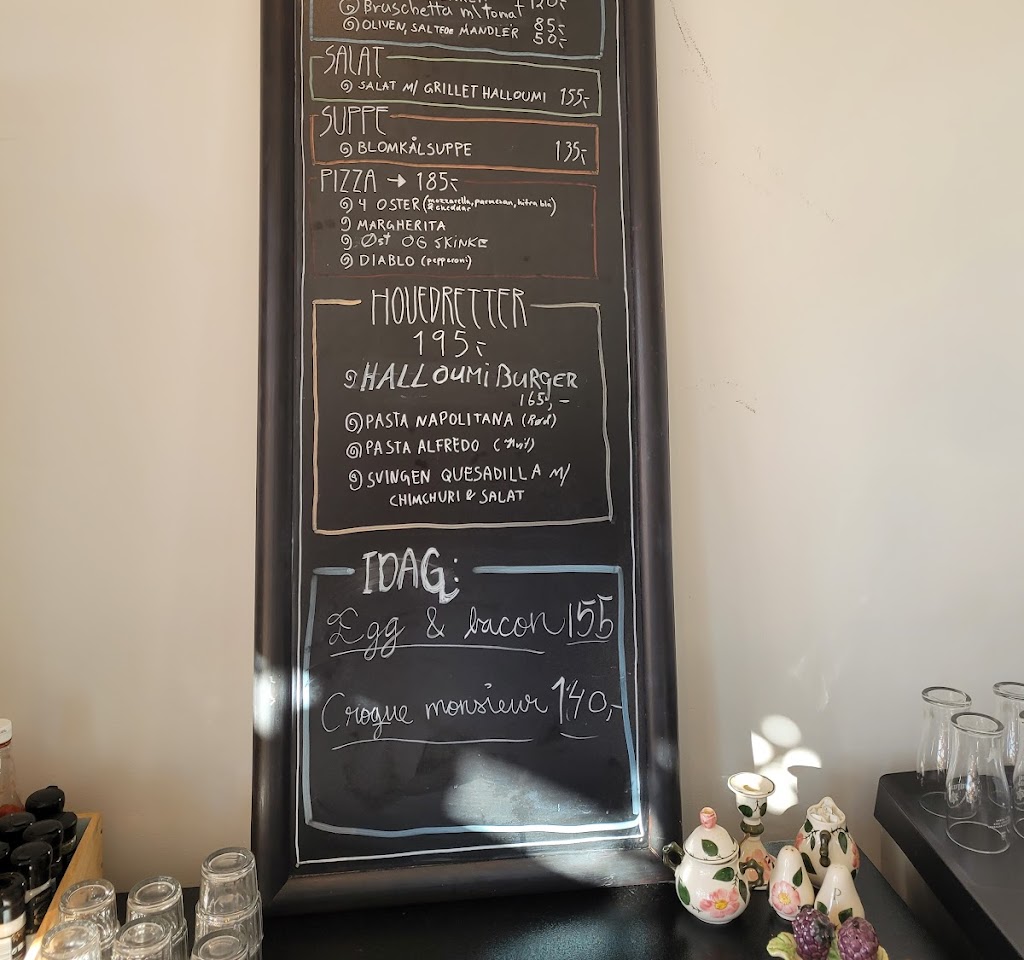 120,-
Bruschetta m/tomat 85,-
OLIVEN, SALTEDE MANDLER 50,-
SALAT
SALAT M/ GRILLET HALLOUMI 155,-
SUPPE
BLOMKÅLSUPPE 135,-
PIZZA → 185,-
4 OSTER (mozzarella, parmesan, kitra blå
& cheddar)
MARGHERITA
ØST OG SKINKE
DIABLO (pepperoni)
HOVEDRETTER
195,-
HALLOUMI BURGER
165,-
PASTA NAPOLITANA (Rød)
PASTA ALFREDO (Hvit)
SVINGEN QUESADILLA M/
CHIMCHURI & SALAT
IDAG:
Egg & bacon 155
Croque monsieur 140,-
P